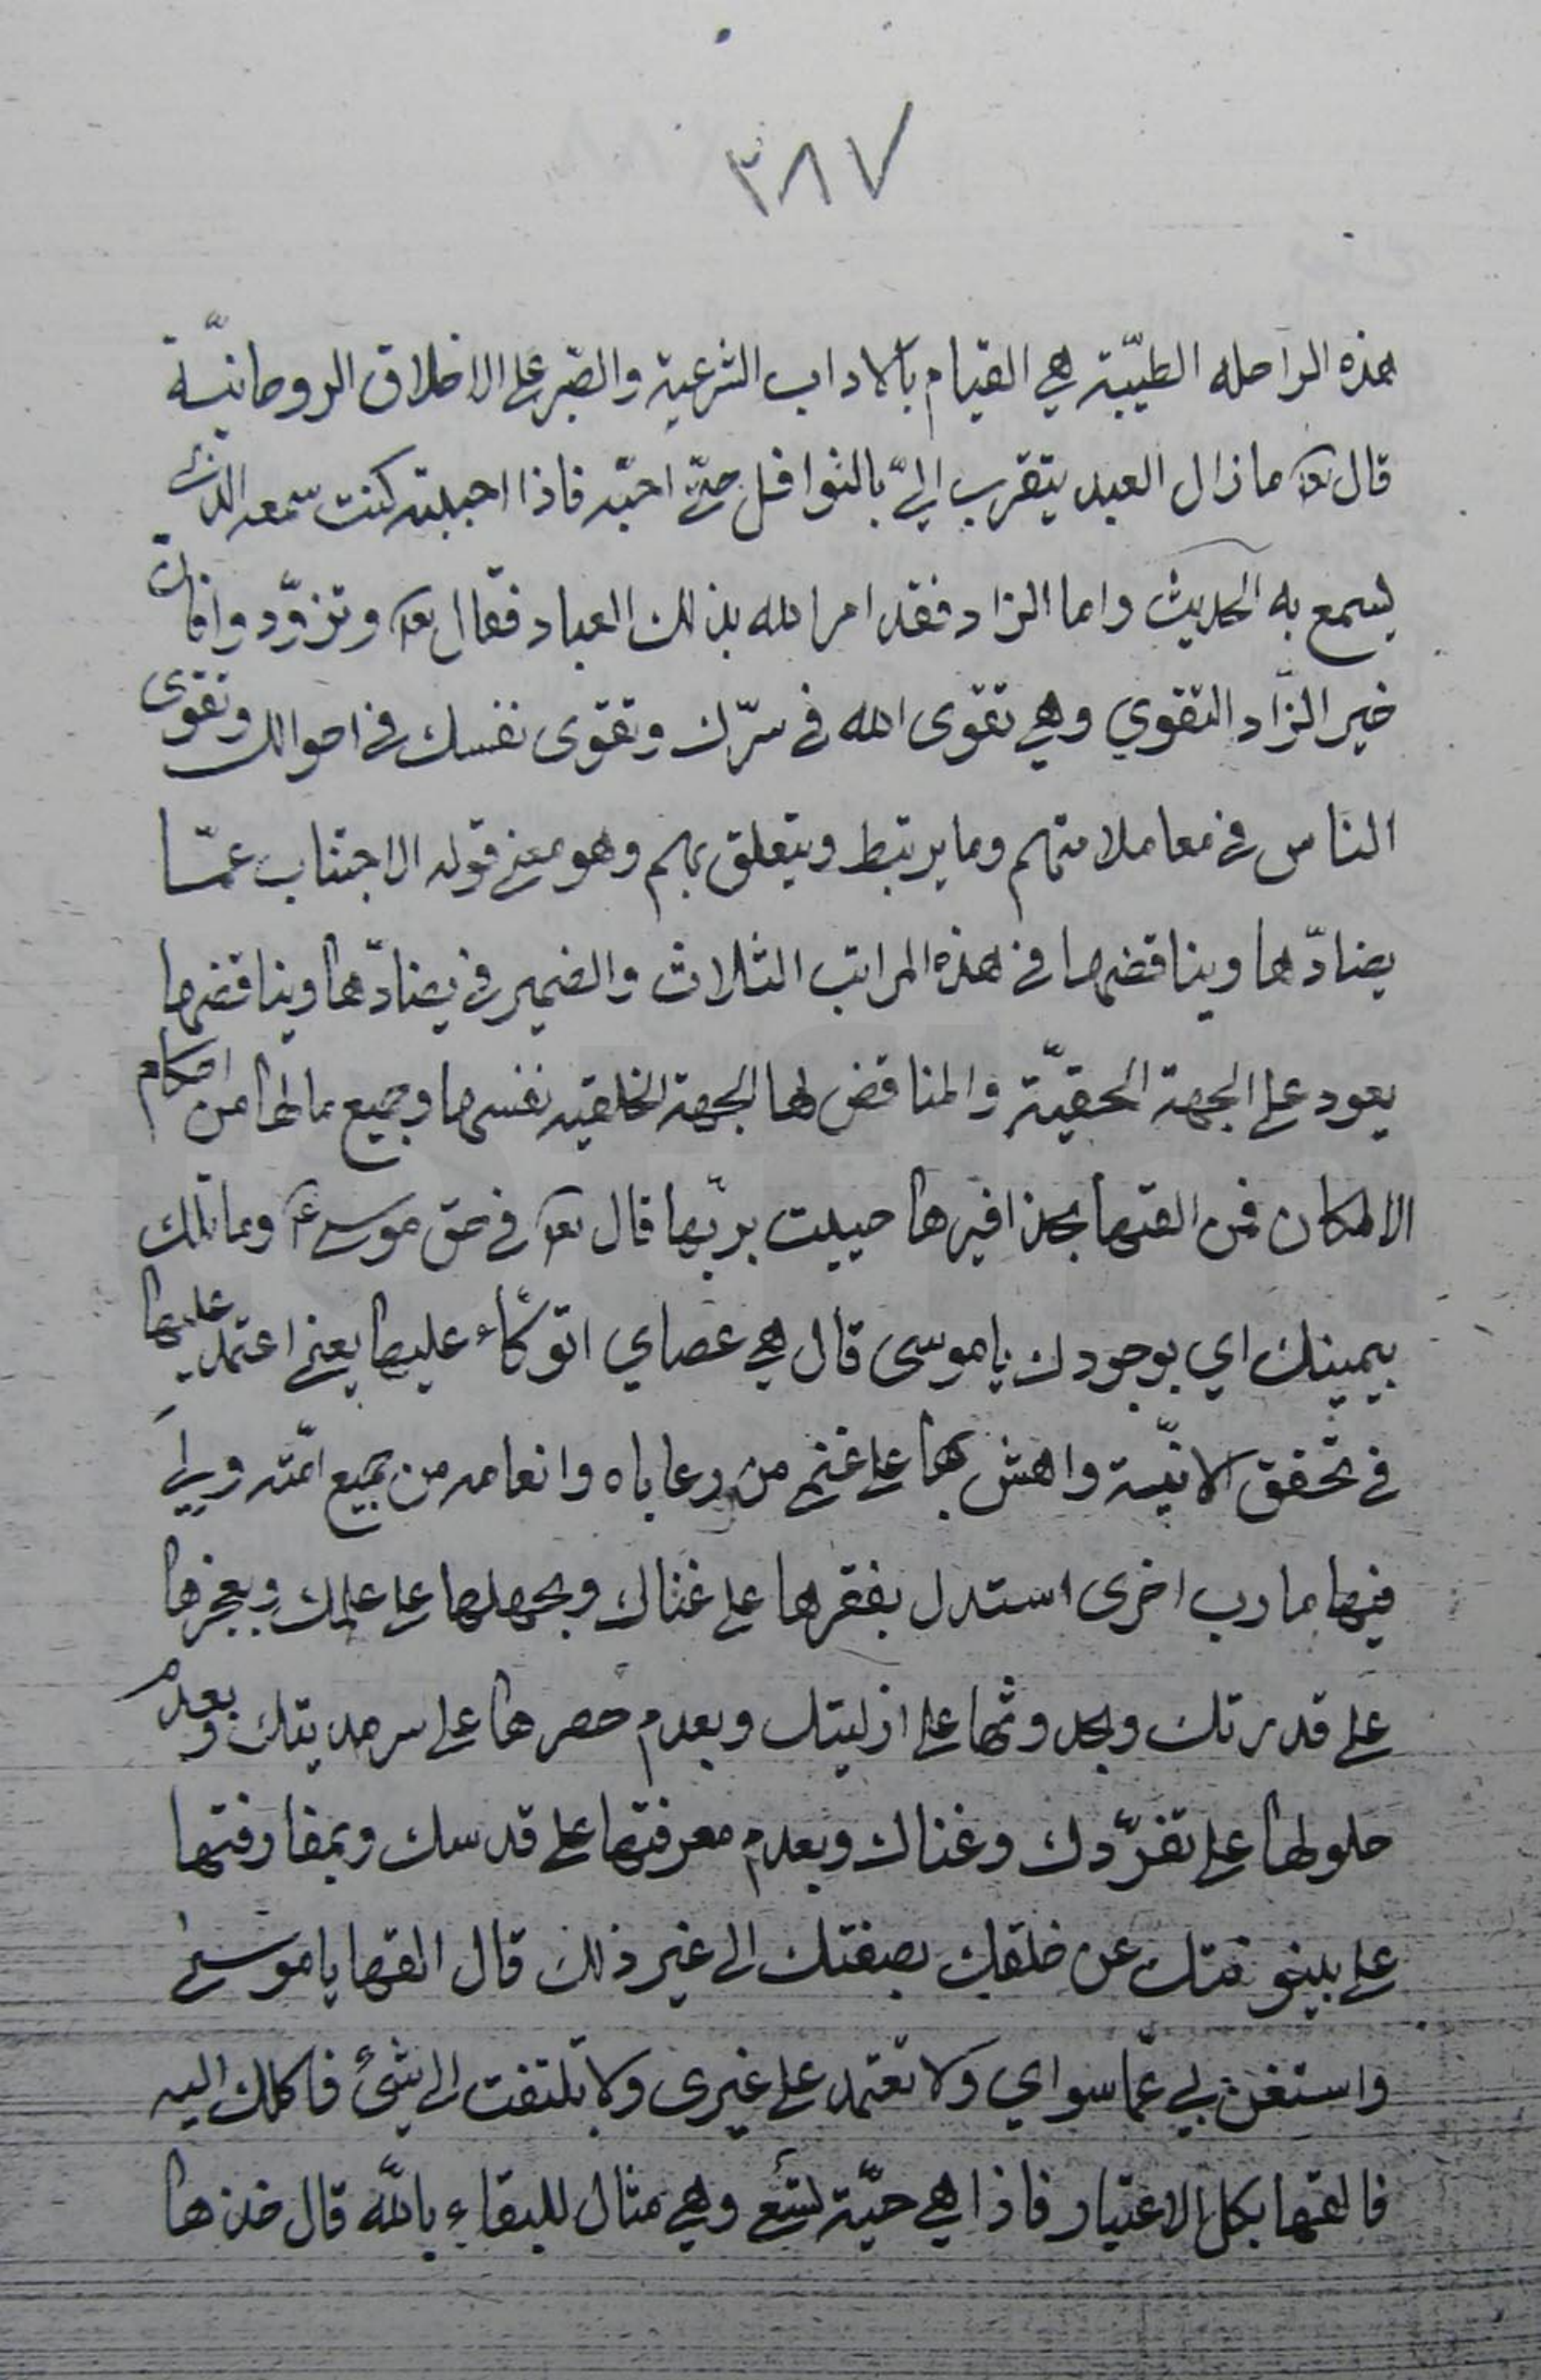 ٣٨٧
هذه الراحله الطيّبة هي القيام بالاداب الشرعية والصّبر على الاخلاق الروحانيّة
قال تعه مازال العبد يتقرب اليّ بالنوافل حتّى احبّه فاذا احببته كنت سمعه الذي
يسمع به الحديث واما الزاد فقد امر الله بذلك العباد فقال تعه وتزوّدوا فان
خير الزّاد التقوي وهي تقوى الله في سرّك وتقوى نفسك في احوالك وتقوى
الناس في معاملاتهم وما يرتبط ويتعلق بهم وهو معنى قوله الاجتناب عمّا
يضادّها ويناقضها في هذه المراتب الثلاث والضمير في يضادّها ويناقضها
يعود على الجهة الحقيّة والمناقض لها الجهة الخلقيه نفسها وجميع مالها من احكام
الامكان فمن القتها بحذافيرها حييت بربّها قال تعه في حق موسى ع وما تلك
بيمينك اي بوجودك ياموسى قال هي عصاي اتوكّاء عليها يعني اعتمد عليها
في تحقق الانيّة واهش بها على غنمي من رعاياه وانعامه من جميع امّته ولي
فيها مارب اخرى استدل بفقرها على غناك وبجهلها على علمك وبعجزها
على قدرتك وبحدوثها على ازليتك وبعدم حصرها على سرمديتك وبعدم
حلولها على تفرّدك وغناك وبعدم معرفتها على قدسك وبمفارقتها
على بينونتك عن خلقك بصفتك الى غير ذلك قال القها ياموسى
واستغن بي عمّا سواي ولا تعتمد على غيرى ولا تلتفت الى شئ فاكلك اليه
فالقها بكل الاعتبار فاذا هي حيّة تسعى وهي مثال للبقاء بالله قال خذها